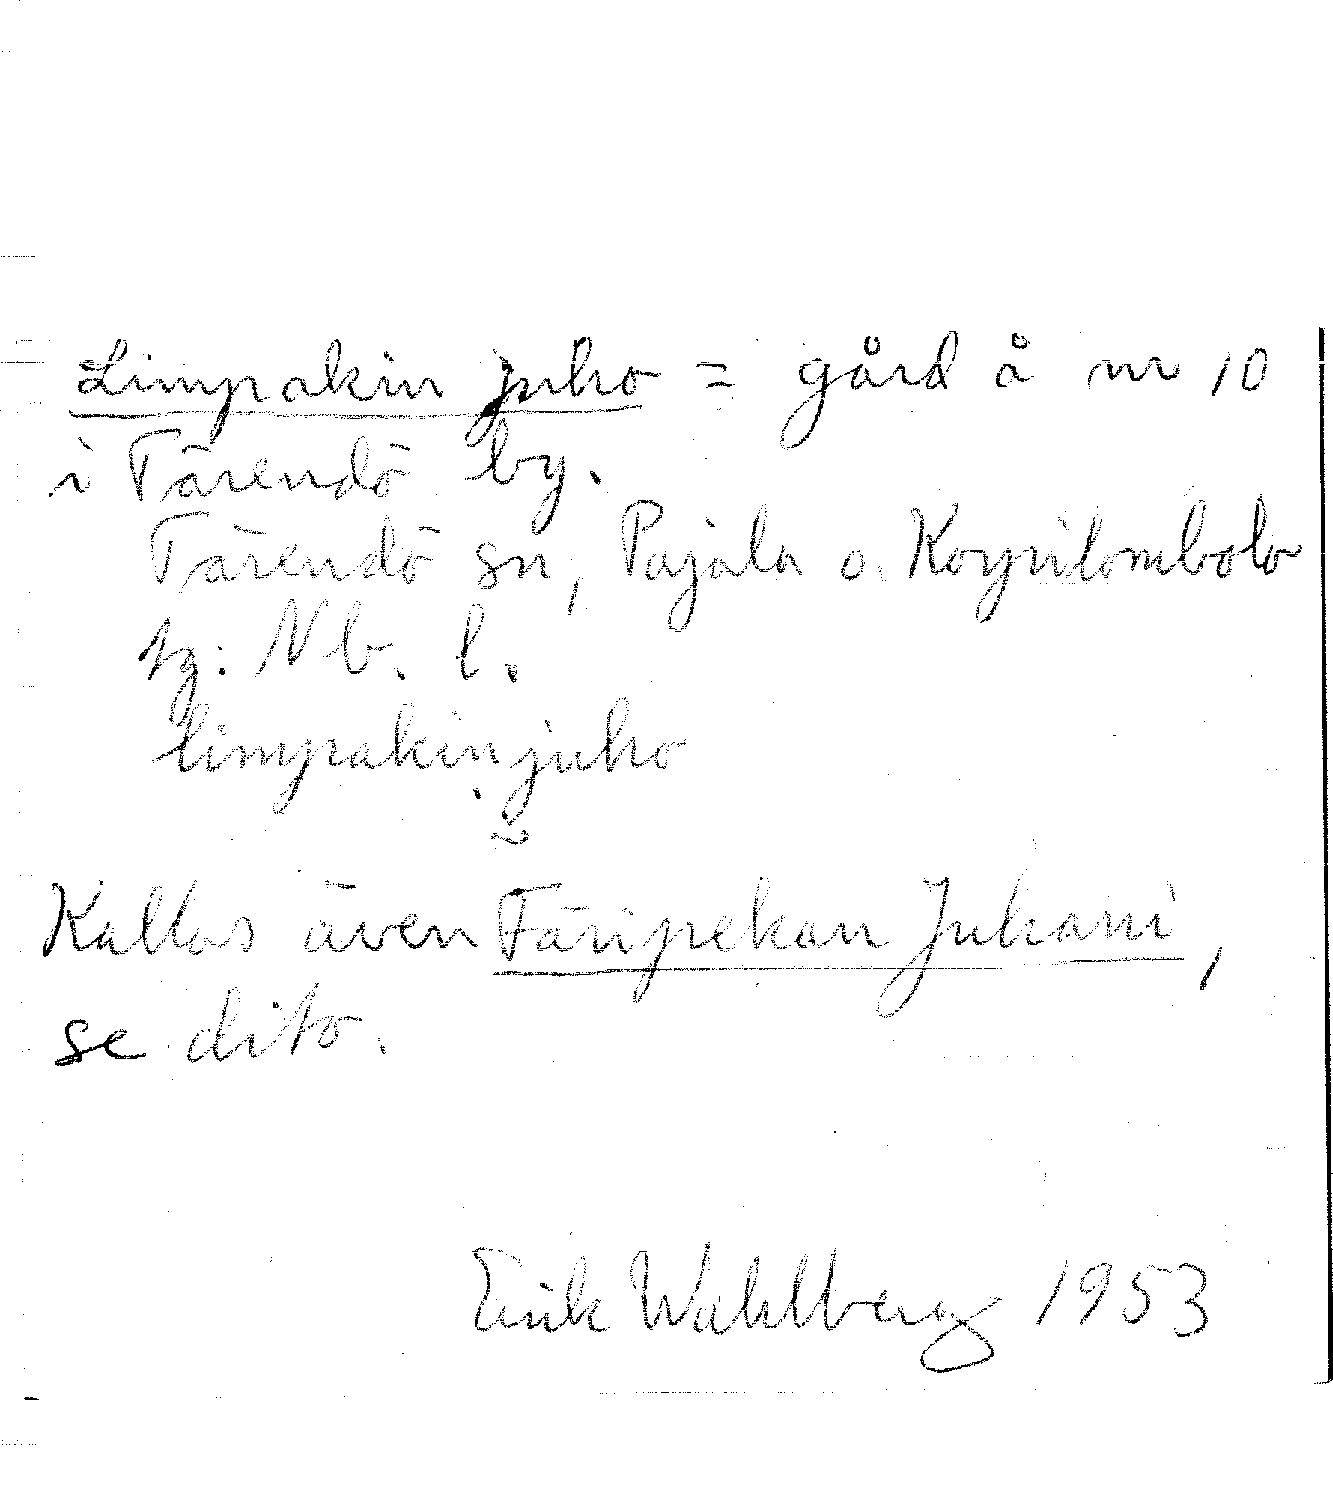 Limpakin juho = gård å nr 10
i Tärendö by.
Tärendö sn, Pajala o. Korpilombolo
tg. Nb. l.
limpakin juho
~
Kallas även Färipekan Juhani,
se dito.
Erik Wahlberg 1953